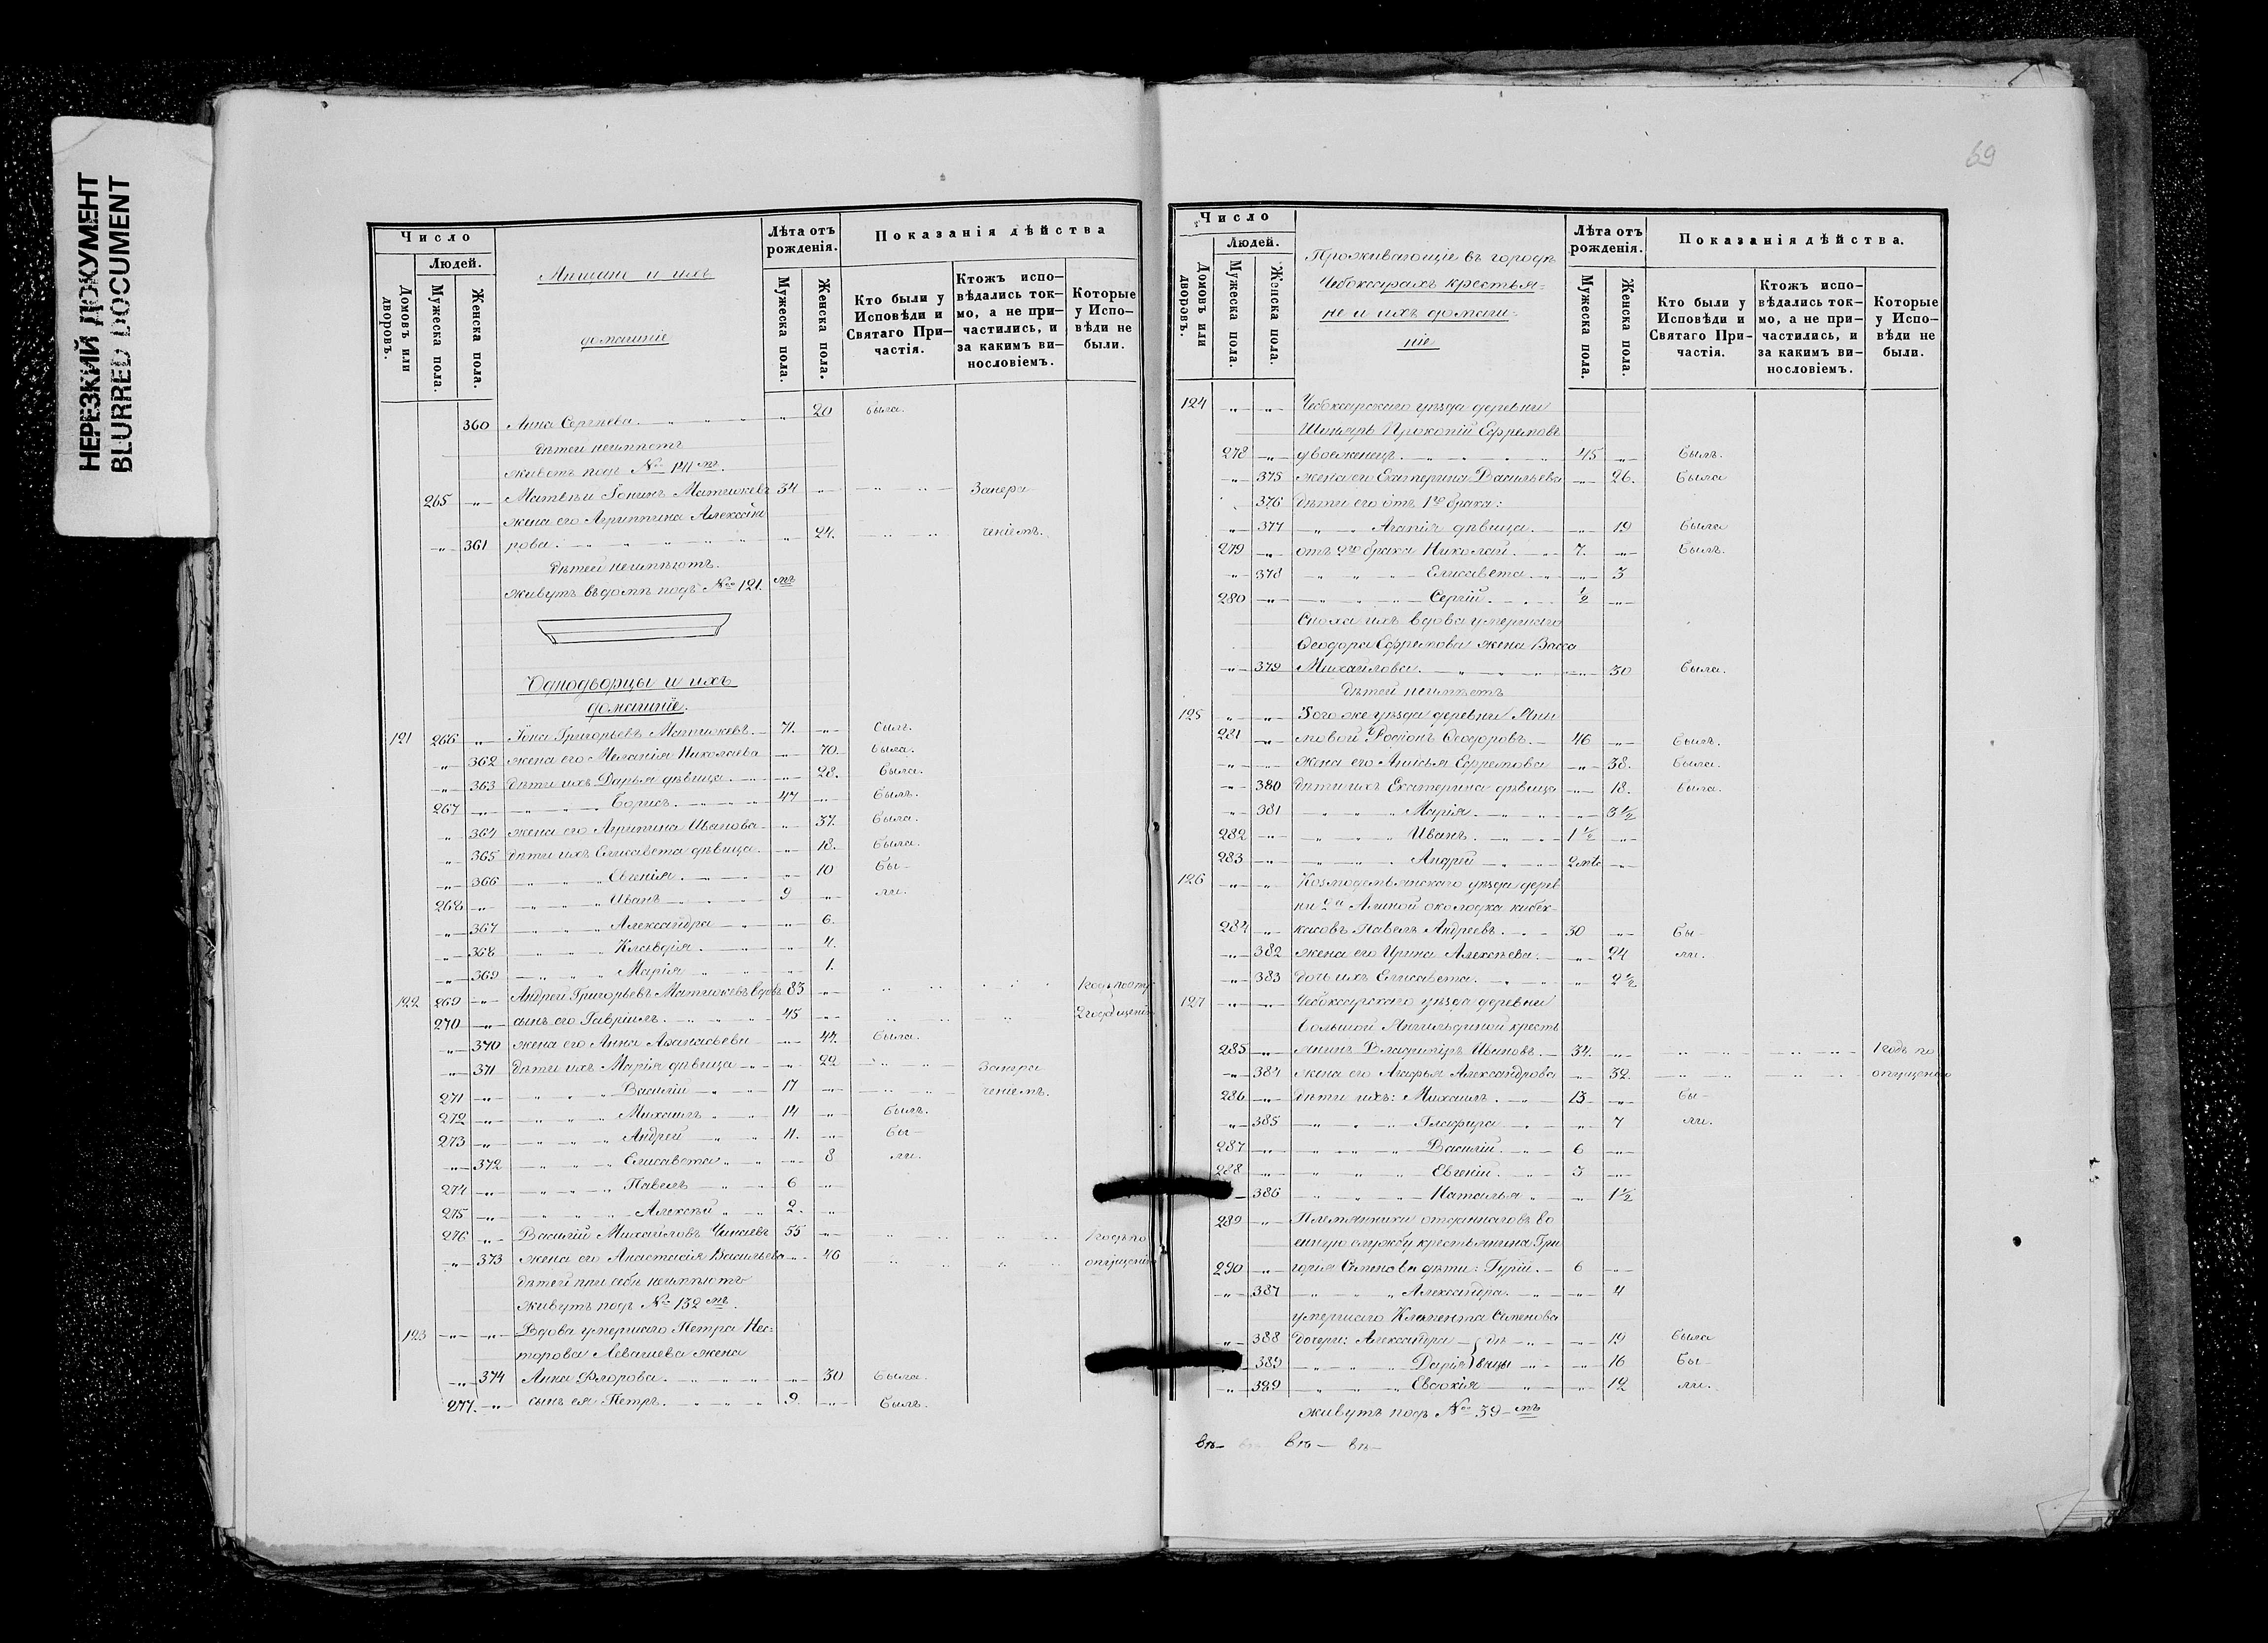 НЕРЕЗКИЙ ДОКУМЕНТ
BLURRED DOCUMENT
Число
Людей.
Домовъ или дворовъ.
Мужеска пола.
Женска пола.
и ихъ
домашніе
Лѣта отъ рожденія.
Мужеска пола.
Женска пола.
Показанія дѣйства
Кто были у Исповѣди и Святаго При-частія.
Ктожъ испо-вѣдались ток-мо, а не при-частились, и за какимъ ви-нословіемъ.
Которые у Испо-вѣди не были.
360 Анна Сергѣева 20 была.
дѣтей неимѣетъ
живетъ подъ №
265 34 Запера
жена его Агриппина Алексан
361 рова 24. ченіемъ.
дѣтей неимѣютъ.
живутъ въ домѣ подъ № 121. мъ
Однодворцы и ихъ
домашніе.
121 266 Іона Григорьевъ 71. былъ.
362 жена его Меланія Николаева 70. была.
363 дѣти ихъ Дарья дѣвица 28. была.
267 Борисъ 47 былъ.
364 жена его Агрипина Иванова 37. была.
365 дѣти ихъ Елисавета дѣвица 18. была.
366 Евгенія 10 бы-
268 Иванъ 9 ли.
367 Александра 6.
368 Клавдія 4.
369 Марія 1.
122 269 Андрей Григорьевъ вдовъ 83
270 сынъ его Гавріилъ 45
370 жена его Анна Афанасьева 44. была.
371 дѣти ихъ Марія дѣвица 22 Запера
271 Василій 17 ченіемъ.
272 Михаилъ 14 былъ.
273 Андрей 11. бы-
372 Елисавета 8 ли.
274 Павелъ 6
275 Алексѣй 2.
276 Василій Михайловъ 55 1 годъ по
373 жена его Анастасія Васильева 46 опущенію
дѣтей при себѣ неимѣютъ
живутъ подъ № 132 мъ.
123 Вдова умершаго Петра Нес-
торова Левашева жена
374 Анна Флорова 30 была.
277. сынъ ея Петръ 9. былъ.
69
Число
Людей.
Домовъ или дворовъ.
Мужеска пола.
Женска пола.
Проживающіе въ городѣ
Чебоксарахъ крестья-
не и ихъ домаш-
ніе
Лѣта отъ рожденія.
Мужеска пола.
Женска пола.
Показанія дѣйства.
Кто были у Исповѣди и Святаго При-частія.
Ктожъ испо-вѣдались ток-мо, а не при-частились, и за какимъ ви-нословіемъ.
Которые у Испо-вѣди не были.
124 Чебоксарскаго уѣзда деревни
Прокопій Ефремовъ
278 двоеженецъ 45 былъ.
375 жена его Екатерина Васильева 26. была
376 дѣти его отъ 1го брака:
377 Агапія дѣвица 19 была
279 отъ 2го брака Николай 7. былъ.
378 Елисавета 3
280 Сергій ½
Сноха ихъ вдова умершаго
Ѳеодора Ефремова жена Васса
379 Михайлова 30 была.
дѣтей неимѣетъ
125 Того же уѣзда деревни
281 Ѳеодоровъ 46 былъ.
жена его Анисья Ефремова 38. была.
380 дѣти ихъ Екатерина дѣвица 18. была.
381 Марія 3½
282 Иванъ 1½
283 Андрей 2 мѣс
126 Козмодемьянскаго уѣзда дерев
ни околодка
284 Павелъ Андреевъ 30 бы-
382 жена его Ирина Алексѣева 24 ли.
383 дочь ихъ Елисавета 2½
127 Чебоксарскаго уѣзда деревни
Большой кресть
285 янинъ Владиміръ Ивановъ 34. 1 годъ по
384 жена его Агафья Александрова 32. опущенію
286 дѣти ихъ: Михаилъ 13 бы-
385 Глафира 7 ли.
287 Василій 6
288 Евгеній 3
386 Наталья 1½
289 Племянники отданнаго въ во
енную службу крестьянина Гри
290 горія Семенова дѣти: Гурій 6
387 Александра 4
умершаго Климента Семенова
388 дочери: Александра дѣ 19 была
389 Дарія вицы 16 бы-
389 Евдокія 12 ли.
живутъ подъ № 39-мъ
въ- въ- въ-